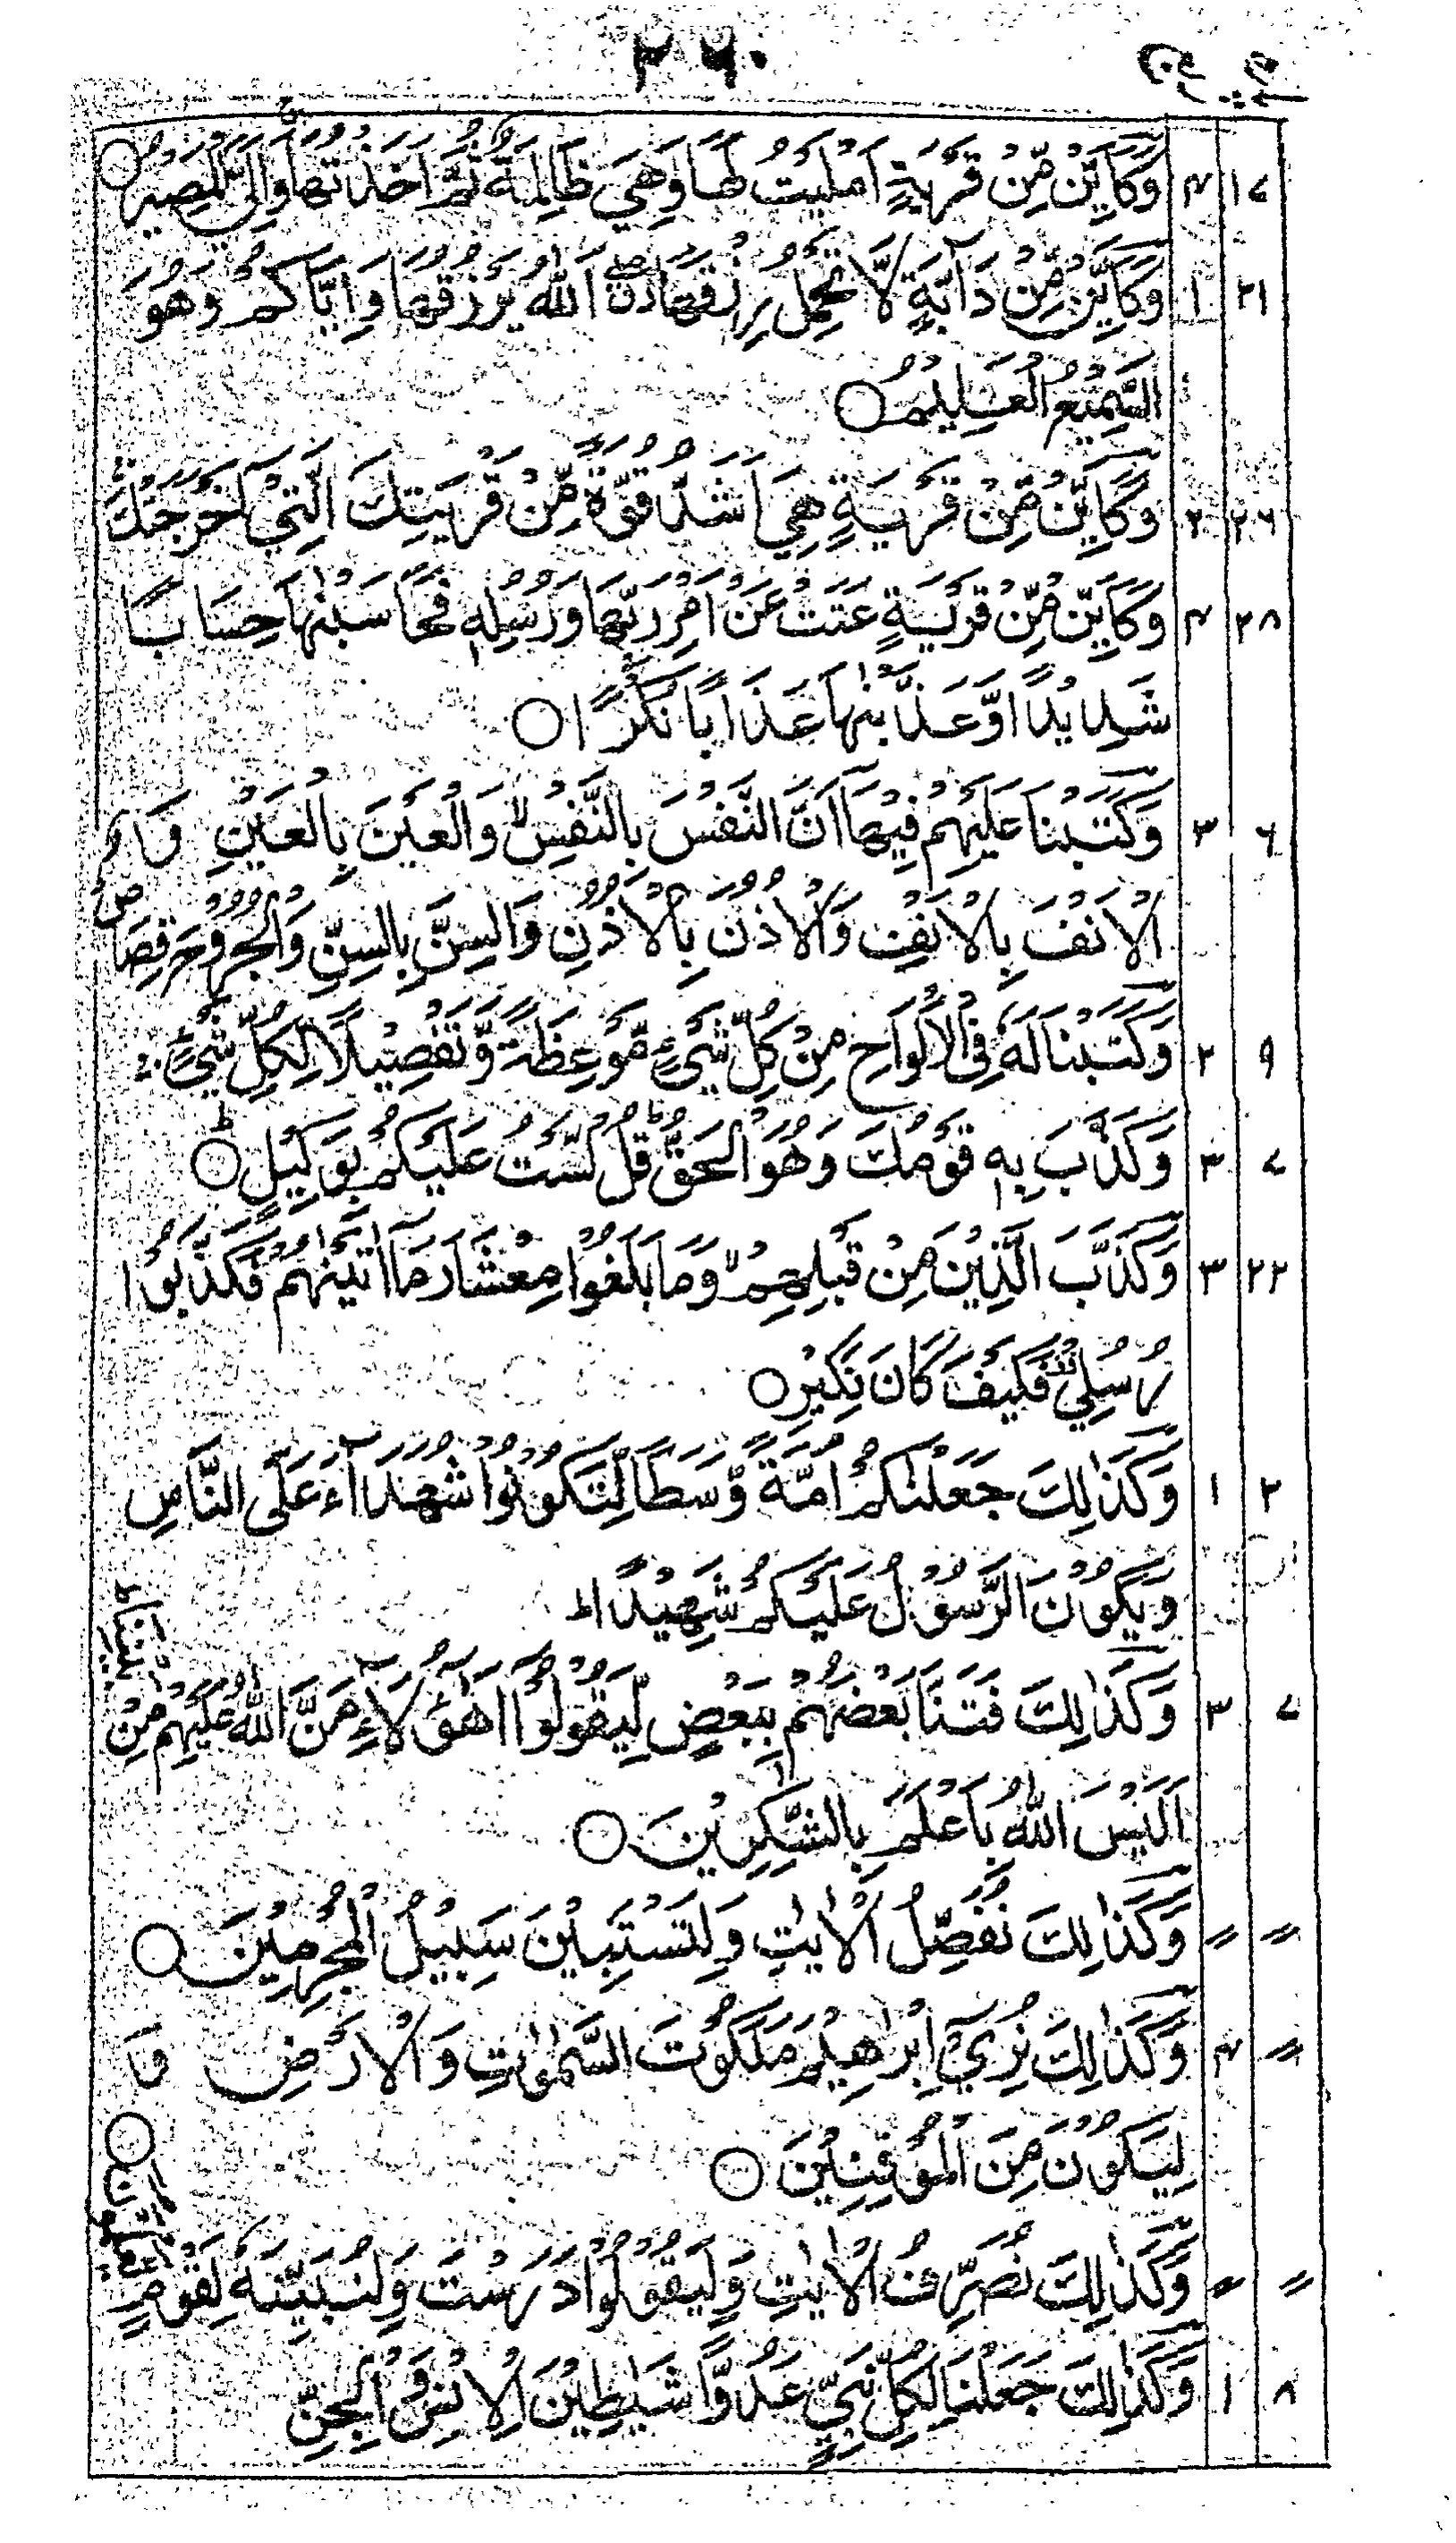 ٢٦٠
١٧ ٤ وَكَاَيِّنْ مِّنْ قَرْيَةٍ اَمْلَيْتُ لَهَا وَهِيَ ظَالِمَةٌ ثُمَّ اَخَذْتُهَا وَاِلَيَّ الْمَصِيْرُ ○
٢١ ١ وَكَاَيِّنْ مِّنْ دَآبَّةٍ لَّا تَحْمِلُ رِزْقَهَا اَللّٰهُ يَرْزُقُهَا وَاِيَّاكُمْ وَهُوَ
السَّمِيْعُ الْعَلِيْمُ ○
٢٦ ٢ وَكَاَيِّنْ مِّنْ قَرْيَةٍ هِيَ اَشَدُّ قُوَّةً مِّنْ قَرْيَتِكَ الَّتِيْٓ اَخْرَجَتْكَ
٢٨ ٤ وَكَاَيِّنْ مِّنْ قَرْيَةٍ عَتَتْ عَنْ اَمْرِ رَبِّهَا وَرُسُلِهٖ فَحَاسَبْنٰهَا حِسَابًا
شَدِيْدًا وَّعَذَّبْنٰهَا عَذَابًا نُّكْرًا ○
٦ ٣ وَكَتَبْنَا عَلَيْهِمْ فِيْهَآ اَنَّ النَّفْسَ بِالنَّفْسِ ۙ وَالْعَيْنَ بِالْعَيْنِ وَ
الْاَنْفَ بِالْاَنْفِ وَالْاُذُنَ بِالْاُذُنِ وَالسِّنَّ بِالسِّنِّ وَالْجُرُوْحَ قِصَاصٌ
٩ ٢ وَكَتَبْنَا لَهٗ فِى الْاَلْوَاحِ مِنْ كُلِّ شَيْءٍ مَّوْعِظَةً وَّتَفْصِيْلًا لِّكُلِّ شَيْءٍ
٧ ٣ وَكَذَّبَ بِهٖ قَوْمُكَ وَهُوَ الْحَقُّ ط قُلْ لَّسْتُ عَلَيْكُمْ بِوَكِيْلٍ ○ ط
٢٢ ٣ وَكَذَّبَ الَّذِيْنَ مِنْ قَبْلِهِمْ ۙ وَمَا بَلَغُوْا مِعْشَارَ مَآ اٰتَيْنٰهُمْ فَكَذَّبُوْا
رُسُلِيْ فَكَيْفَ كَانَ نَكِيْرِ ○
٢ ١ وَكَذٰلِكَ جَعَلْنٰكُمْ اُمَّةً وَّسَطًا لِّتَكُوْنُوْا شُهَدَآءَ عَلَى النَّاسِ
وَيَكُوْنَ الرَّسُوْلُ عَلَيْكُمْ شَهِيْدًا ط
٧ ٣ وَكَذٰلِكَ فَتَنَّا بَعْضَهُمْ بِبَعْضٍ لِّيَقُوْلُوْٓا اَهٰٓؤُلَآءِ مَنَّ اللّٰهُ عَلَيْهِمْ مِّنْ بَيْنِنَا ط
اَلَيْسَ اللّٰهُ بِاَعْلَمَ بِالشّٰكِرِيْنَ ○
〃 〃 وَكَذٰلِكَ نُفَصِّلُ الْاٰيٰتِ وَلِتَسْتَبِيْنَ سَبِيْلُ الْمُجْرِمِيْنَ ○
〃 ٤ وَكَذٰلِكَ نُرِيْٓ اِبْرٰهِيْمَ مَلَكُوْتَ السَّمٰوٰتِ وَالْاَرْضِ وَ
لِيَكُوْنَ مِنَ الْمُوْقِنِيْنَ ○
〃 〃 وَكَذٰلِكَ نُصَرِّفُ الْاٰيٰتِ وَلِيَقُوْلُوْا دَرَسْتَ وَلِنُبَيِّنَهٗ لِقَوْمٍ يَّعْلَمُوْنَ ○
٨ ١ وَكَذٰلِكَ جَعَلْنَا لِكُلِّ نَبِيٍّ عَدُوًّا شَيٰطِيْنَ الْاِنْسِ وَالْجِنِّ